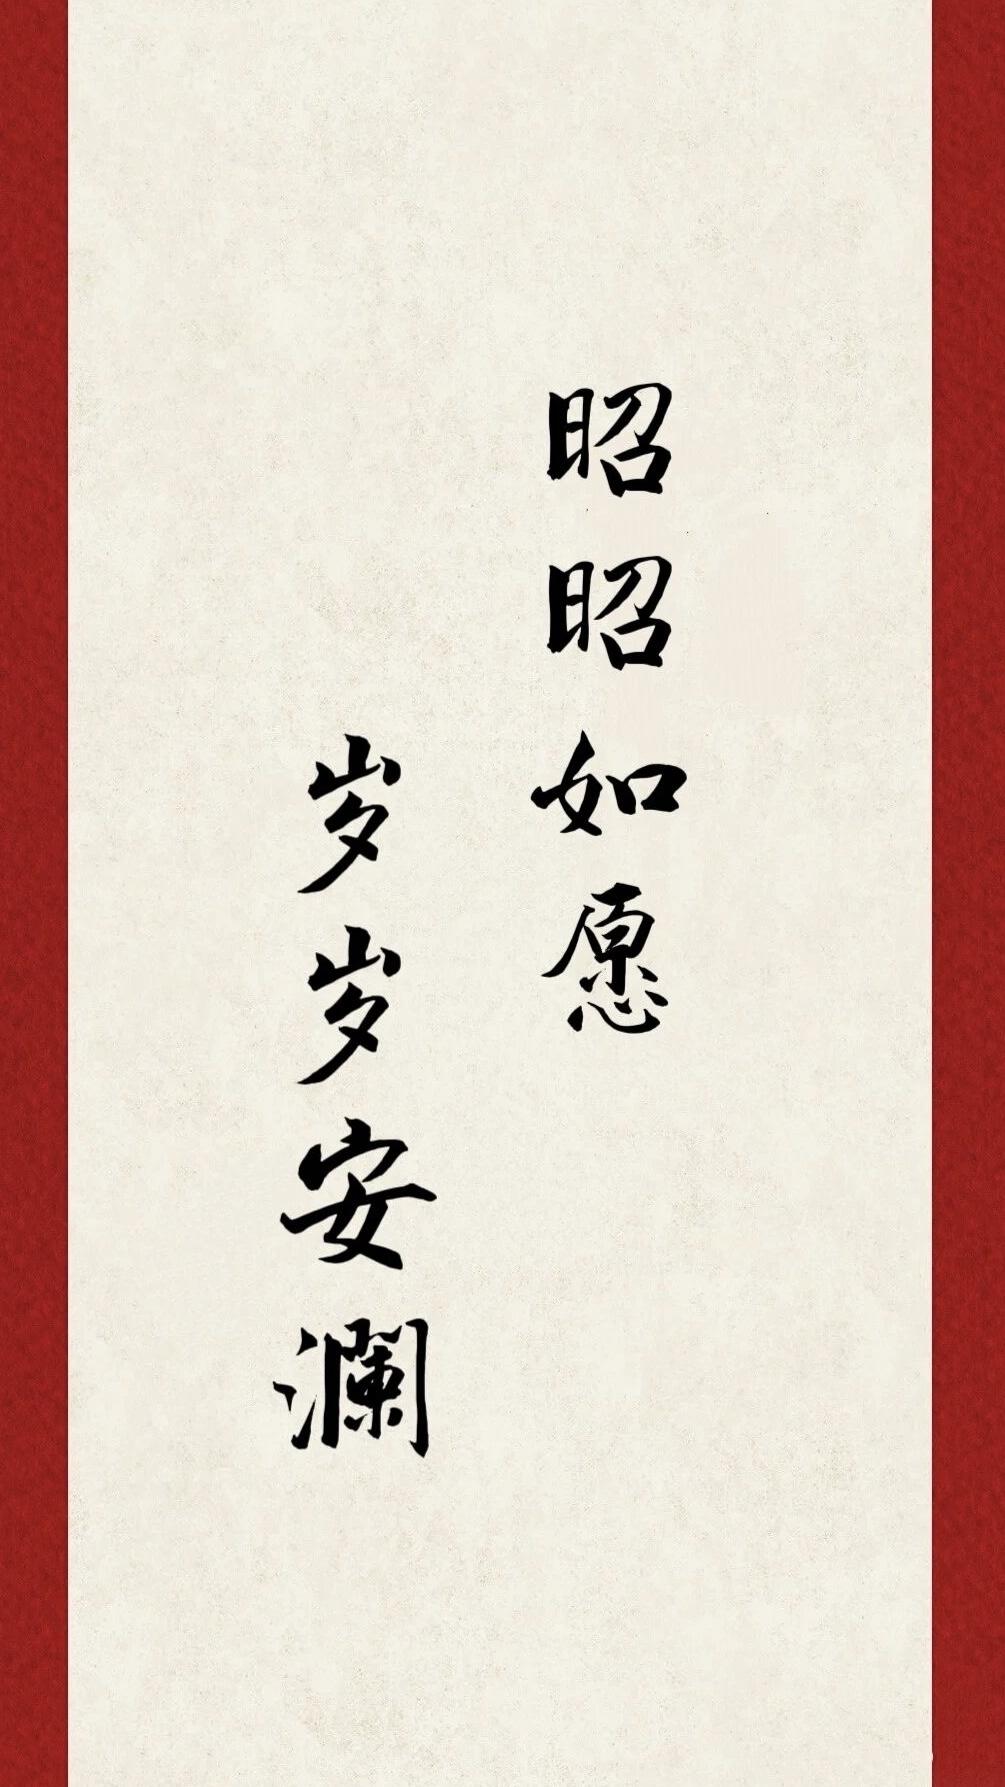 昭昭如愿
岁岁安澜